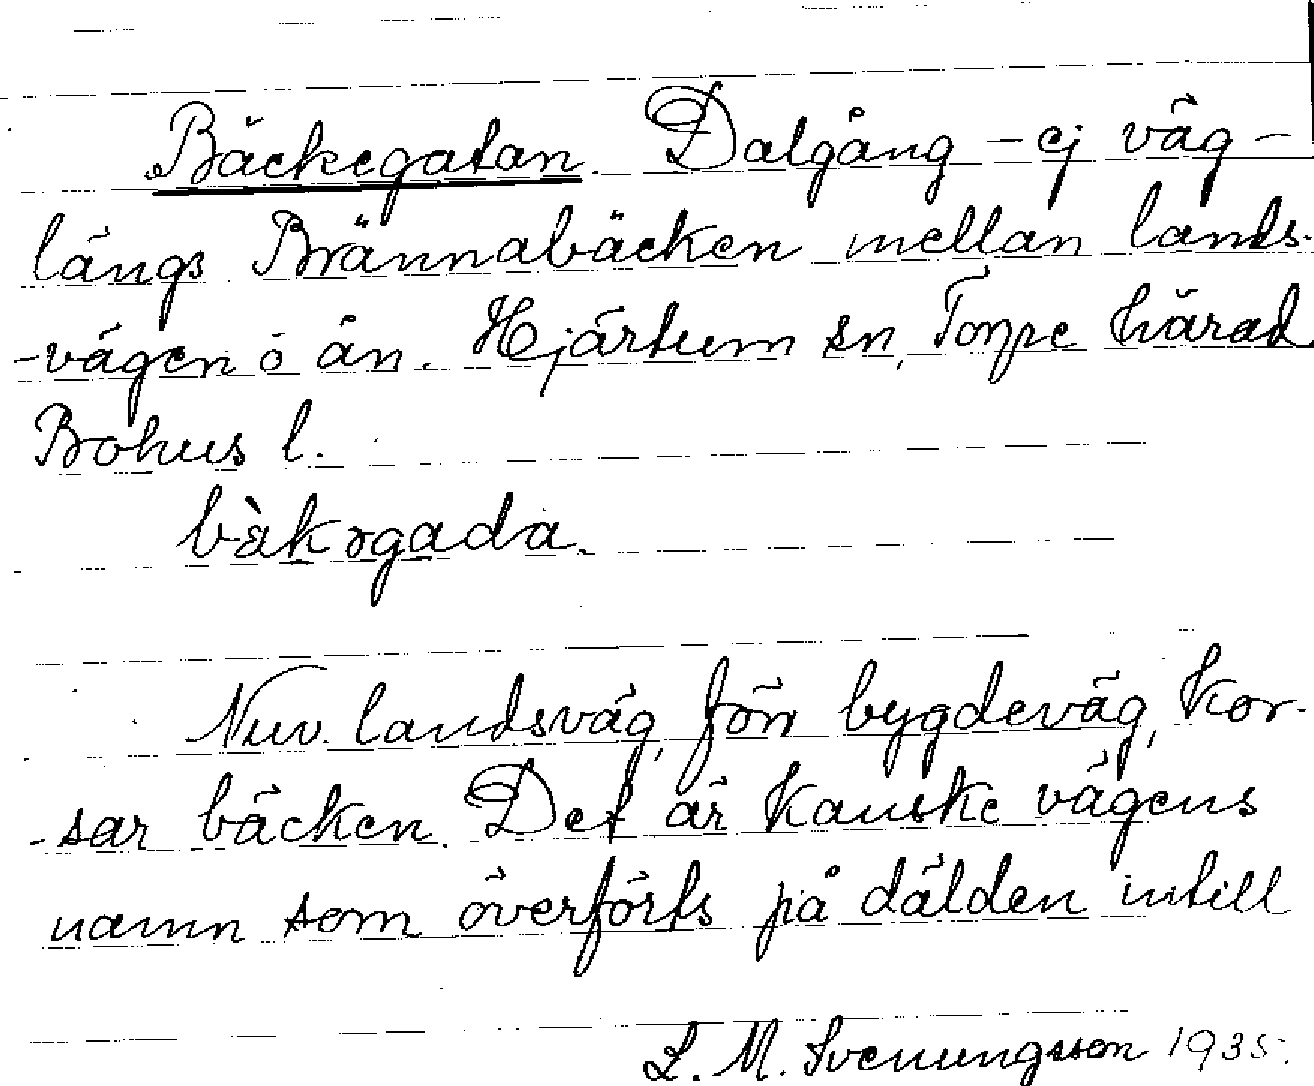 Bäckegatan. Dalgång – ej väg –
längs Brännabäcken mellan lands-
-vägen o ån. Hjärtum sn, Torpe härad
Bohus l.
bàkəgada.
Nuv. landsväg, förr bygdeväg, kor-
-sar bäcken. Det är kanske vägens
namn som överförts på dälden intill
L. M. Svenungsson 1935.